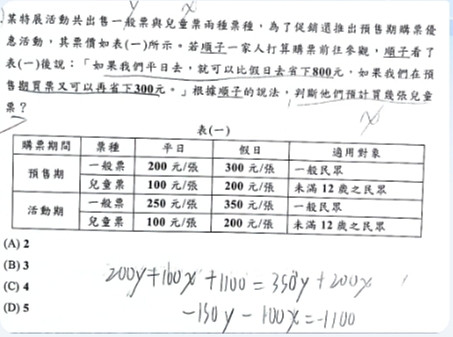 y x
某特展活動共出售一般票與兒童票兩種票種,為了促銷還推出預售期購票優
惠活動,其票價如表(一)所示。若順子一家人打算購票前往參觀,順子看了
表(一)後說:「如果我們平日去,就可以比假日去省下800元,如果我們在預
售期買票又可以再省下300元。」根據順子的說法,判斷他們預計買幾張兒童
票?
x
表(一)
購票期間 票種 平日 假日 適用對象
預售期 一般票 200 元/張 300 元/張 一般民眾
兒童票 100 元/張 200 元/張 未滿 12 歲之民眾
活動期 一般票 250 元/張 350 元/張 一般民眾
兒童票 100 元/張 200 元/張 未滿 12 歲之民眾
(A) 2
(B) 3
(C) 4
(D) 5
200y+100x+1100=350y+200x
-150y-100x=-1100